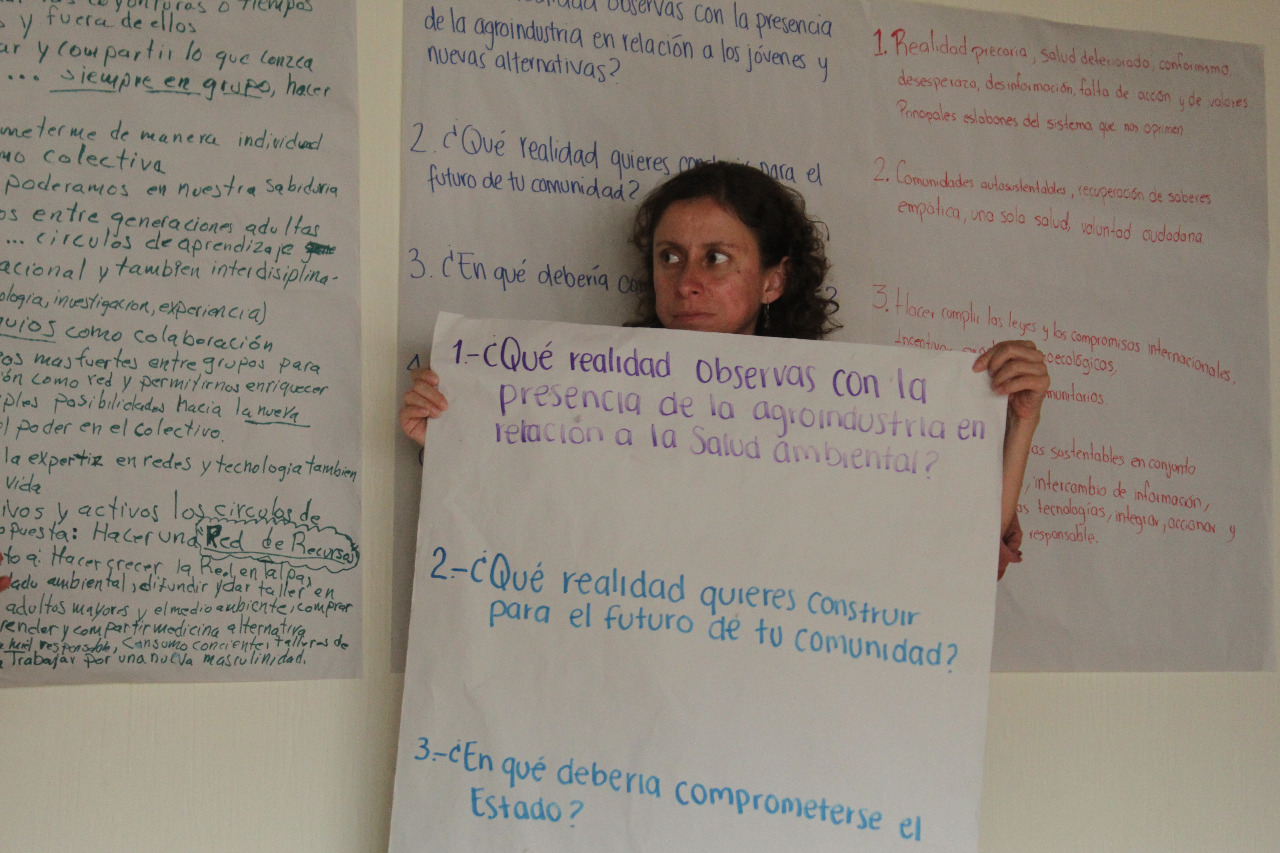 y fuera de ellos
ar y compartir lo que conzca
... siempre en grupo, hacer
meterme de manera individual
mo colectiva
poderamos en nuestra Sabiduria
os entre generaciones adultas
... circulos de aprendizaje
acional y tambien interdisiplina-
ologia, investigacion, experiencia)
como colaboración
os mas fuertes entre grupos para
ón como red y permitirnos enriquecer
ples posibilidades hacia la nueva
l poder en el colectivo.
la expertiz en redes y tecnologia tambien
vida
ivos y activos los circulos de
opuesta: Hacer una Red de Recursos
to a: Hacer crecer la Red en
ambiental, difundir y dar taller en
adultos mayores y el medio ambiente, comprar
render y compartir medicina alternativa
responsable, Consumo conciente, talleres de
Trabajar por una nueva masculinidad.
observas con la presencia
de la agroindustria en relación a los jóvenes y
nuevas alternativas?
2. ¿Qué realidad quieres para el
futuro de tu comunidad?
3. ¿En qué debería
1. Realidad precaria, salud deteriorado, conformismo,
desesperaza, desinformación, falta de acción y de valores
Principales eslabones del sistema que nos oprimen
2. Comunidades autosustentables, recuperación de saberes
empática, una sola salud, voluntad ciudadana
3. Hacer cumplir las leyes y los compromisos internacionales,
oecológicos,
munitarios.
as sustentables en conjunto
, intercambio de información,
as tecnologías, integrar, accionar y
responsable.
1.-¿Qué realidad observas con la
presencia de la agroindustria en
relación a la Salud ambiental?
2.-¿Qué realidad quieres construir
para el futuro de tu comunidad?
3.-¿En qué debería comprometerse el
Estado?